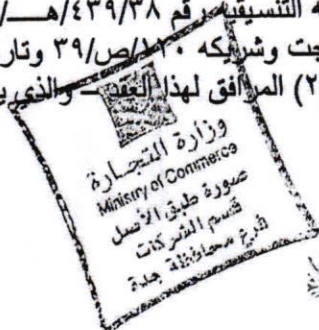 ـه التنسيقية رقم ٤٣٩/٣٨/هـــ/
جت وشريكه ١٢٠/ص/٣٩ وتار
٢) المرافق لهذا العقد – والذي ي
وزارة التجـارة
Ministry of Commerce
صورة طبق الأصل
قسم الشركات
فرع محافظة جدة